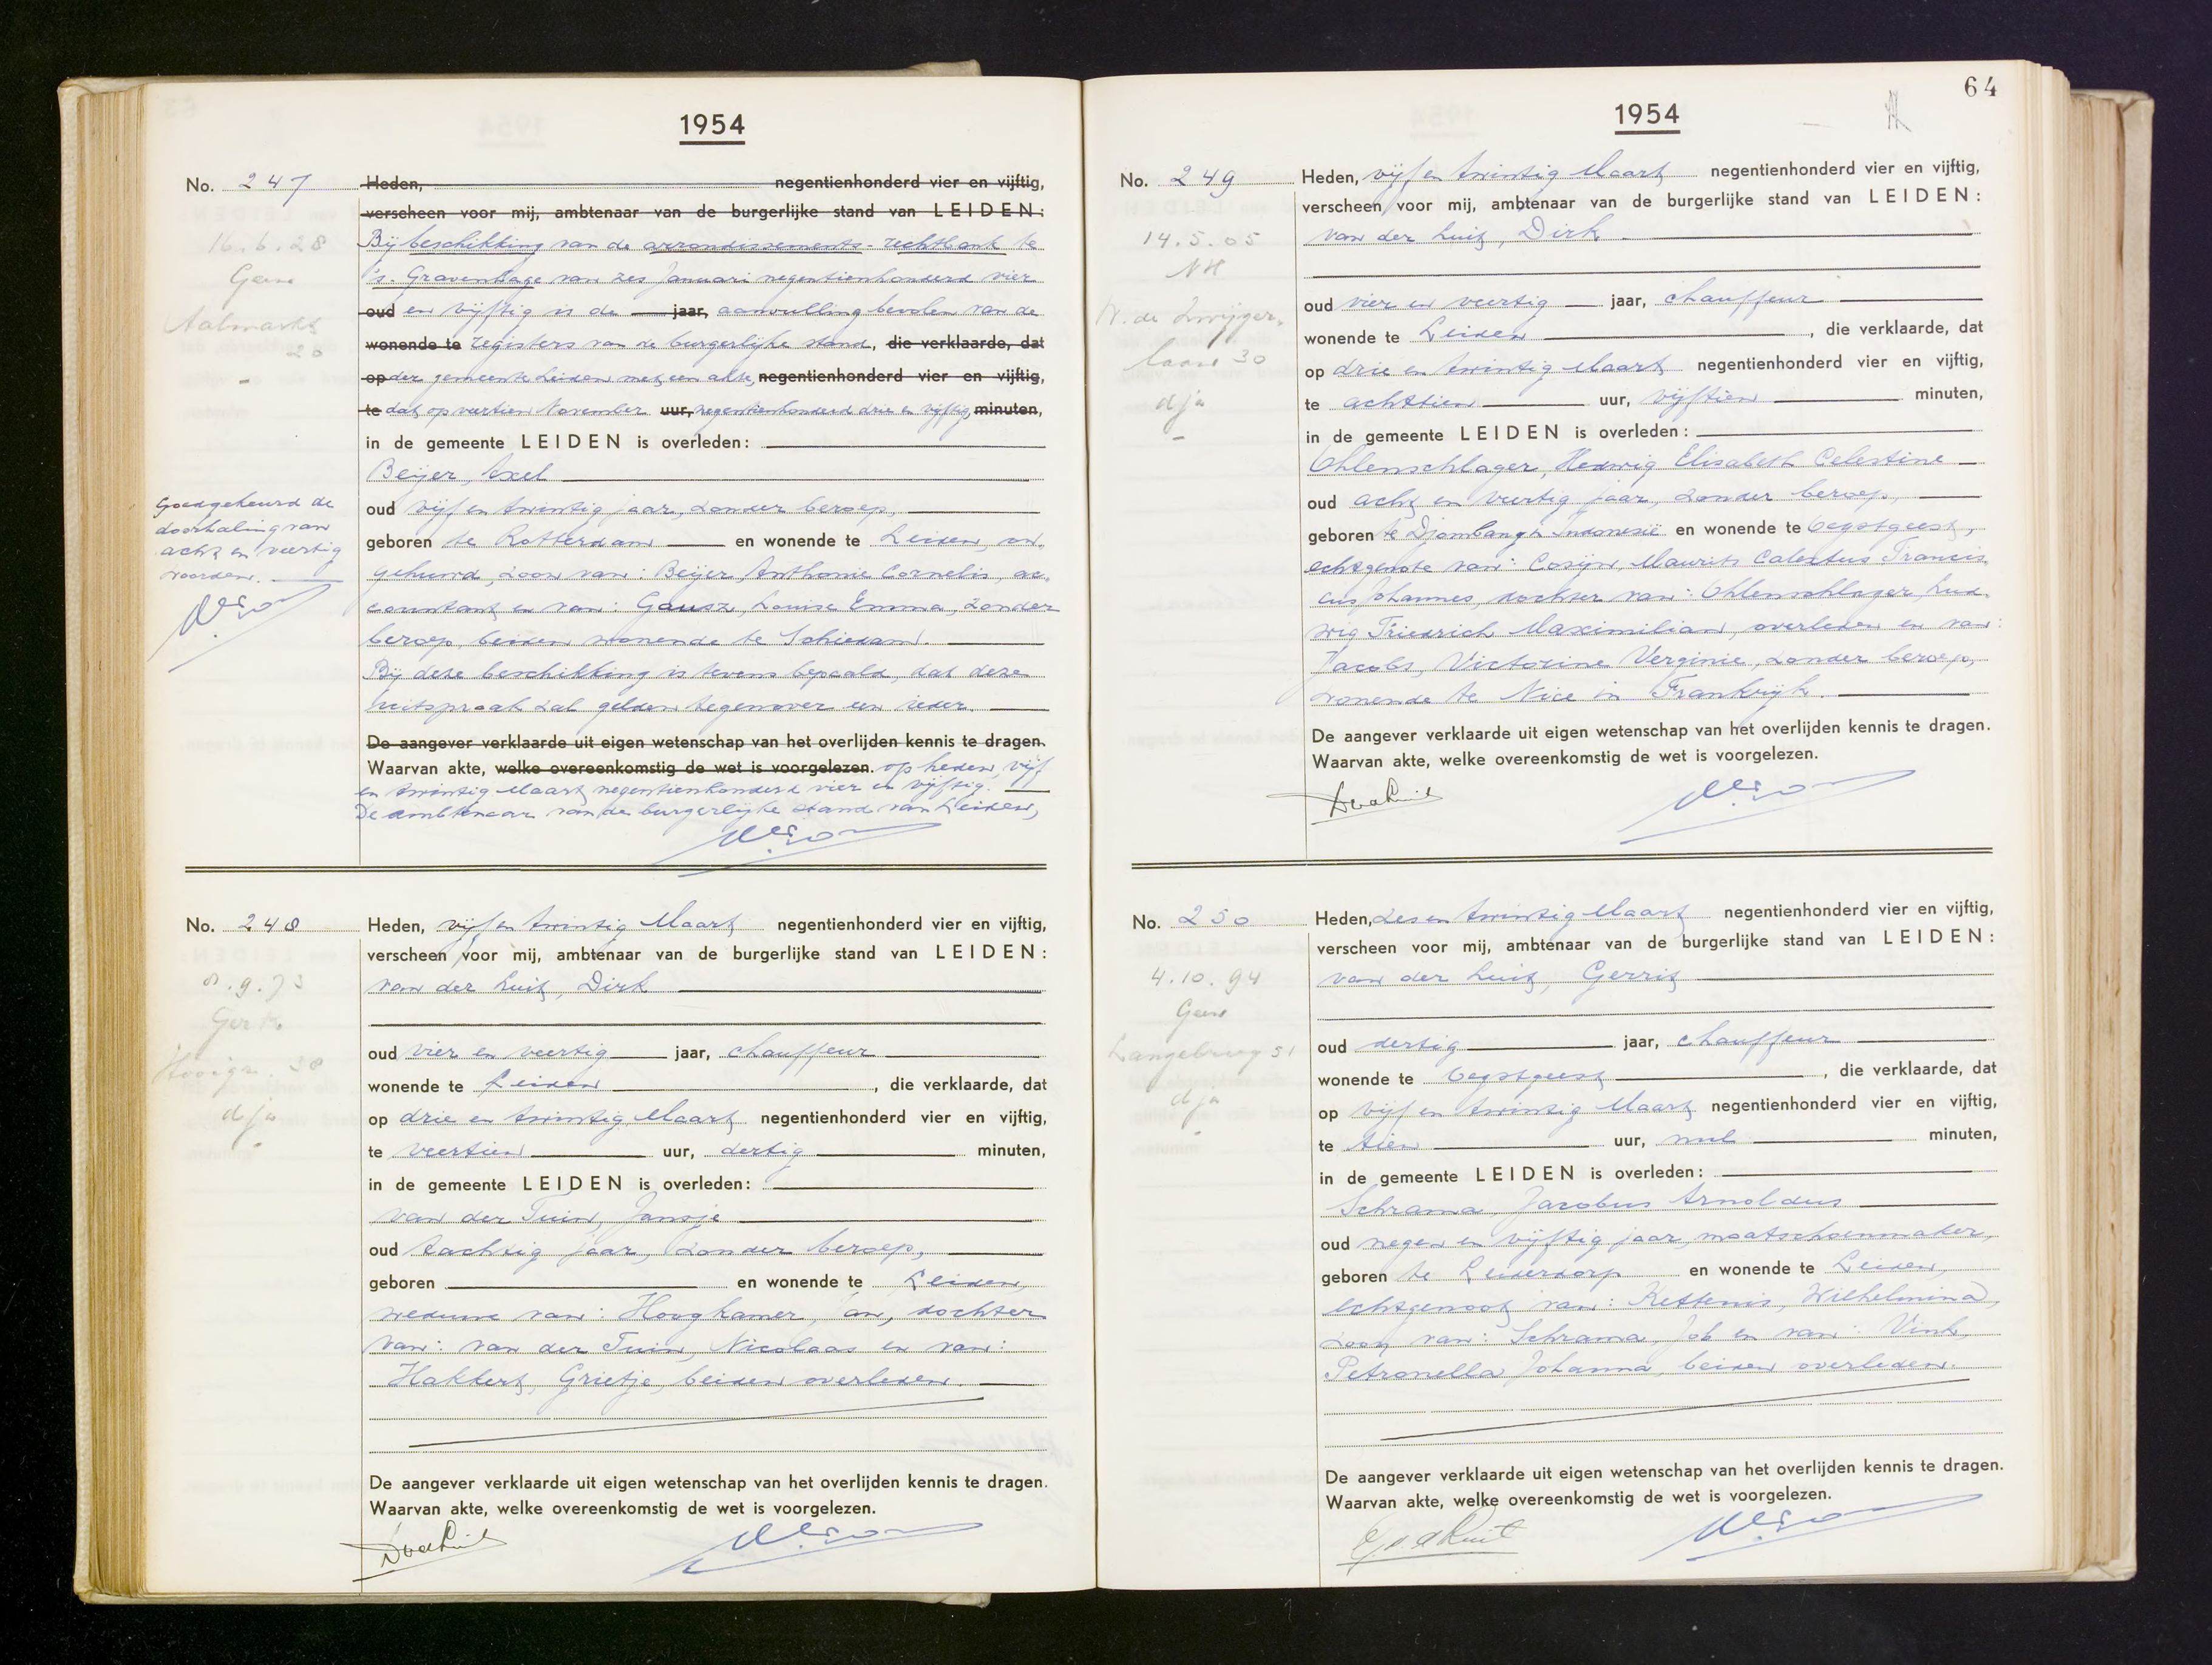 1954
No. 247
Heden, negentienhonderd vier en vijftig,
verscheen voor mij, ambtenaar van de burgerlijke stand van LEIDEN:
16.6.28
Bij beschikking van de arrondissements-rechtbank te
Geen
's-Gravenhage van zes Januari negentienhonderd vier
Aalmarkt
oud en vijftig is de jaar, aanvulling bevolen van de
20
wonende te registers van de burgerlijke stand, die verklaarde, dat
op der gemeente Leiden met een akte, negentienhonderd vier en vijftig,
te dat op veertien November uur, negentienhonderd drie en vijftig, minuten,
in de gemeente LEIDEN is overleden:
Beijer, Axel
Goedgekeurd de
doorhaling van
acht en veertig
woorden.
oud vijf en twintig jaar, zonder beroep,
geboren te Rotterdam en wonende te Leiden, on-
gehuwd, zoon van: Beijer, Anthonie Cornelis, ac-
countant en van: Gausz, Louise Emma, zonder
beroep, beiden wonende te Schiedam.
Bij deze beschikking is tevens bepaald, dat deze
uitspraak zal gelden tegenover een ieder.
De aangever verklaarde uit eigen wetenschap van het overlijden kennis te dragen.
Waarvan akte, welke overeenkomstig de wet is voorgelezen. op heden, vijf
en twintig Maart negentienhonderd vier en vijftig.
De ambtenaar van de burgerlijke stand van Leiden,
No. 248
Heden, vijf en twintig Maart negentienhonderd vier en vijftig,
verscheen voor mij, ambtenaar van de burgerlijke stand van LEIDEN:
8.9.73
van der Luit, Dirk
oud vier en veertig jaar, chauffeur
wonende te Leiden, die verklaarde, dat
dja
op drie en twintig Maart negentienhonderd vier en vijftig,
te veertien uur, dertig minuten,
in de gemeente LEIDEN is overleden:
van der Tuin, Jansje
oud tachtig jaar, zonder beroep,
geboren en wonende te Leiden,
weduwe van: Hoogkamer, Jan, dochter
van: van der Tuin, Nicolaas en van:
Hakkert, Grietje, beiden overleden.
De aangever verklaarde uit eigen wetenschap van het overlijden kennis te dragen.
Waarvan akte, welke overeenkomstig de wet is voorgelezen.
DvdLuit
64
1954
No. 249
Heden, vijf en twintig Maart negentienhonderd vier en vijftig,
verscheen voor mij, ambtenaar van de burgerlijke stand van LEIDEN:
14.5.05
van der Luit, Dirk
NH
W. de Zwijger-
laan 30
dja
oud vier en veertig jaar, chauffeur
wonende te Leiden, die verklaarde, dat
op drie en twintig Maart negentienhonderd vier en vijftig,
te achttien uur, vijftien minuten,
in de gemeente LEIDEN is overleden:
Ohlenschlager, Hedwig Elisabeth Celestine
oud acht en veertig jaar, zonder beroep,
geboren te Djombang in Indonesië en wonende te Oegstgeest,
echtgenote van: Cosijn, Maurits Calextus Francis-
cus Johannes, dochter van: Ohlenschlager, Lud-
wig Friedrich Maximilian, overleden en van:
Jacobs, Victorine Verginie, zonder beroep,
wonende te Nice in Frankrijk.
De aangever verklaarde uit eigen wetenschap van het overlijden kennis te dragen.
Waarvan akte, welke overeenkomstig de wet is voorgelezen.
DvdLuit
No. 250
Heden, zes en twintig Maart negentienhonderd vier en vijftig,
verscheen voor mij, ambtenaar van de burgerlijke stand van LEIDEN:
4.10.94
van der Luit, Gerrit
Geen
Langebrug 51
dja
oud dertig jaar, chauffeur
wonende te Oegstgeest, die verklaarde, dat
op vijf en twintig Maart negentienhonderd vier en vijftig,
te tien uur, nul minuten,
in de gemeente LEIDEN is overleden:
Schrama, Jacobus Arnoldus
oud negen en vijftig jaar, maatschoenmaker,
geboren te Leiderdorp en wonende te Leiden,
echtgenoot van: Kettenis, Wilhelmina,
zoon van: Schrama, Job en van: Vink,
Petronella Johanna, beiden overleden.
De aangever verklaarde uit eigen wetenschap van het overlijden kennis te dragen.
Waarvan akte, welke overeenkomstig de wet is voorgelezen.
G.v.d Luit